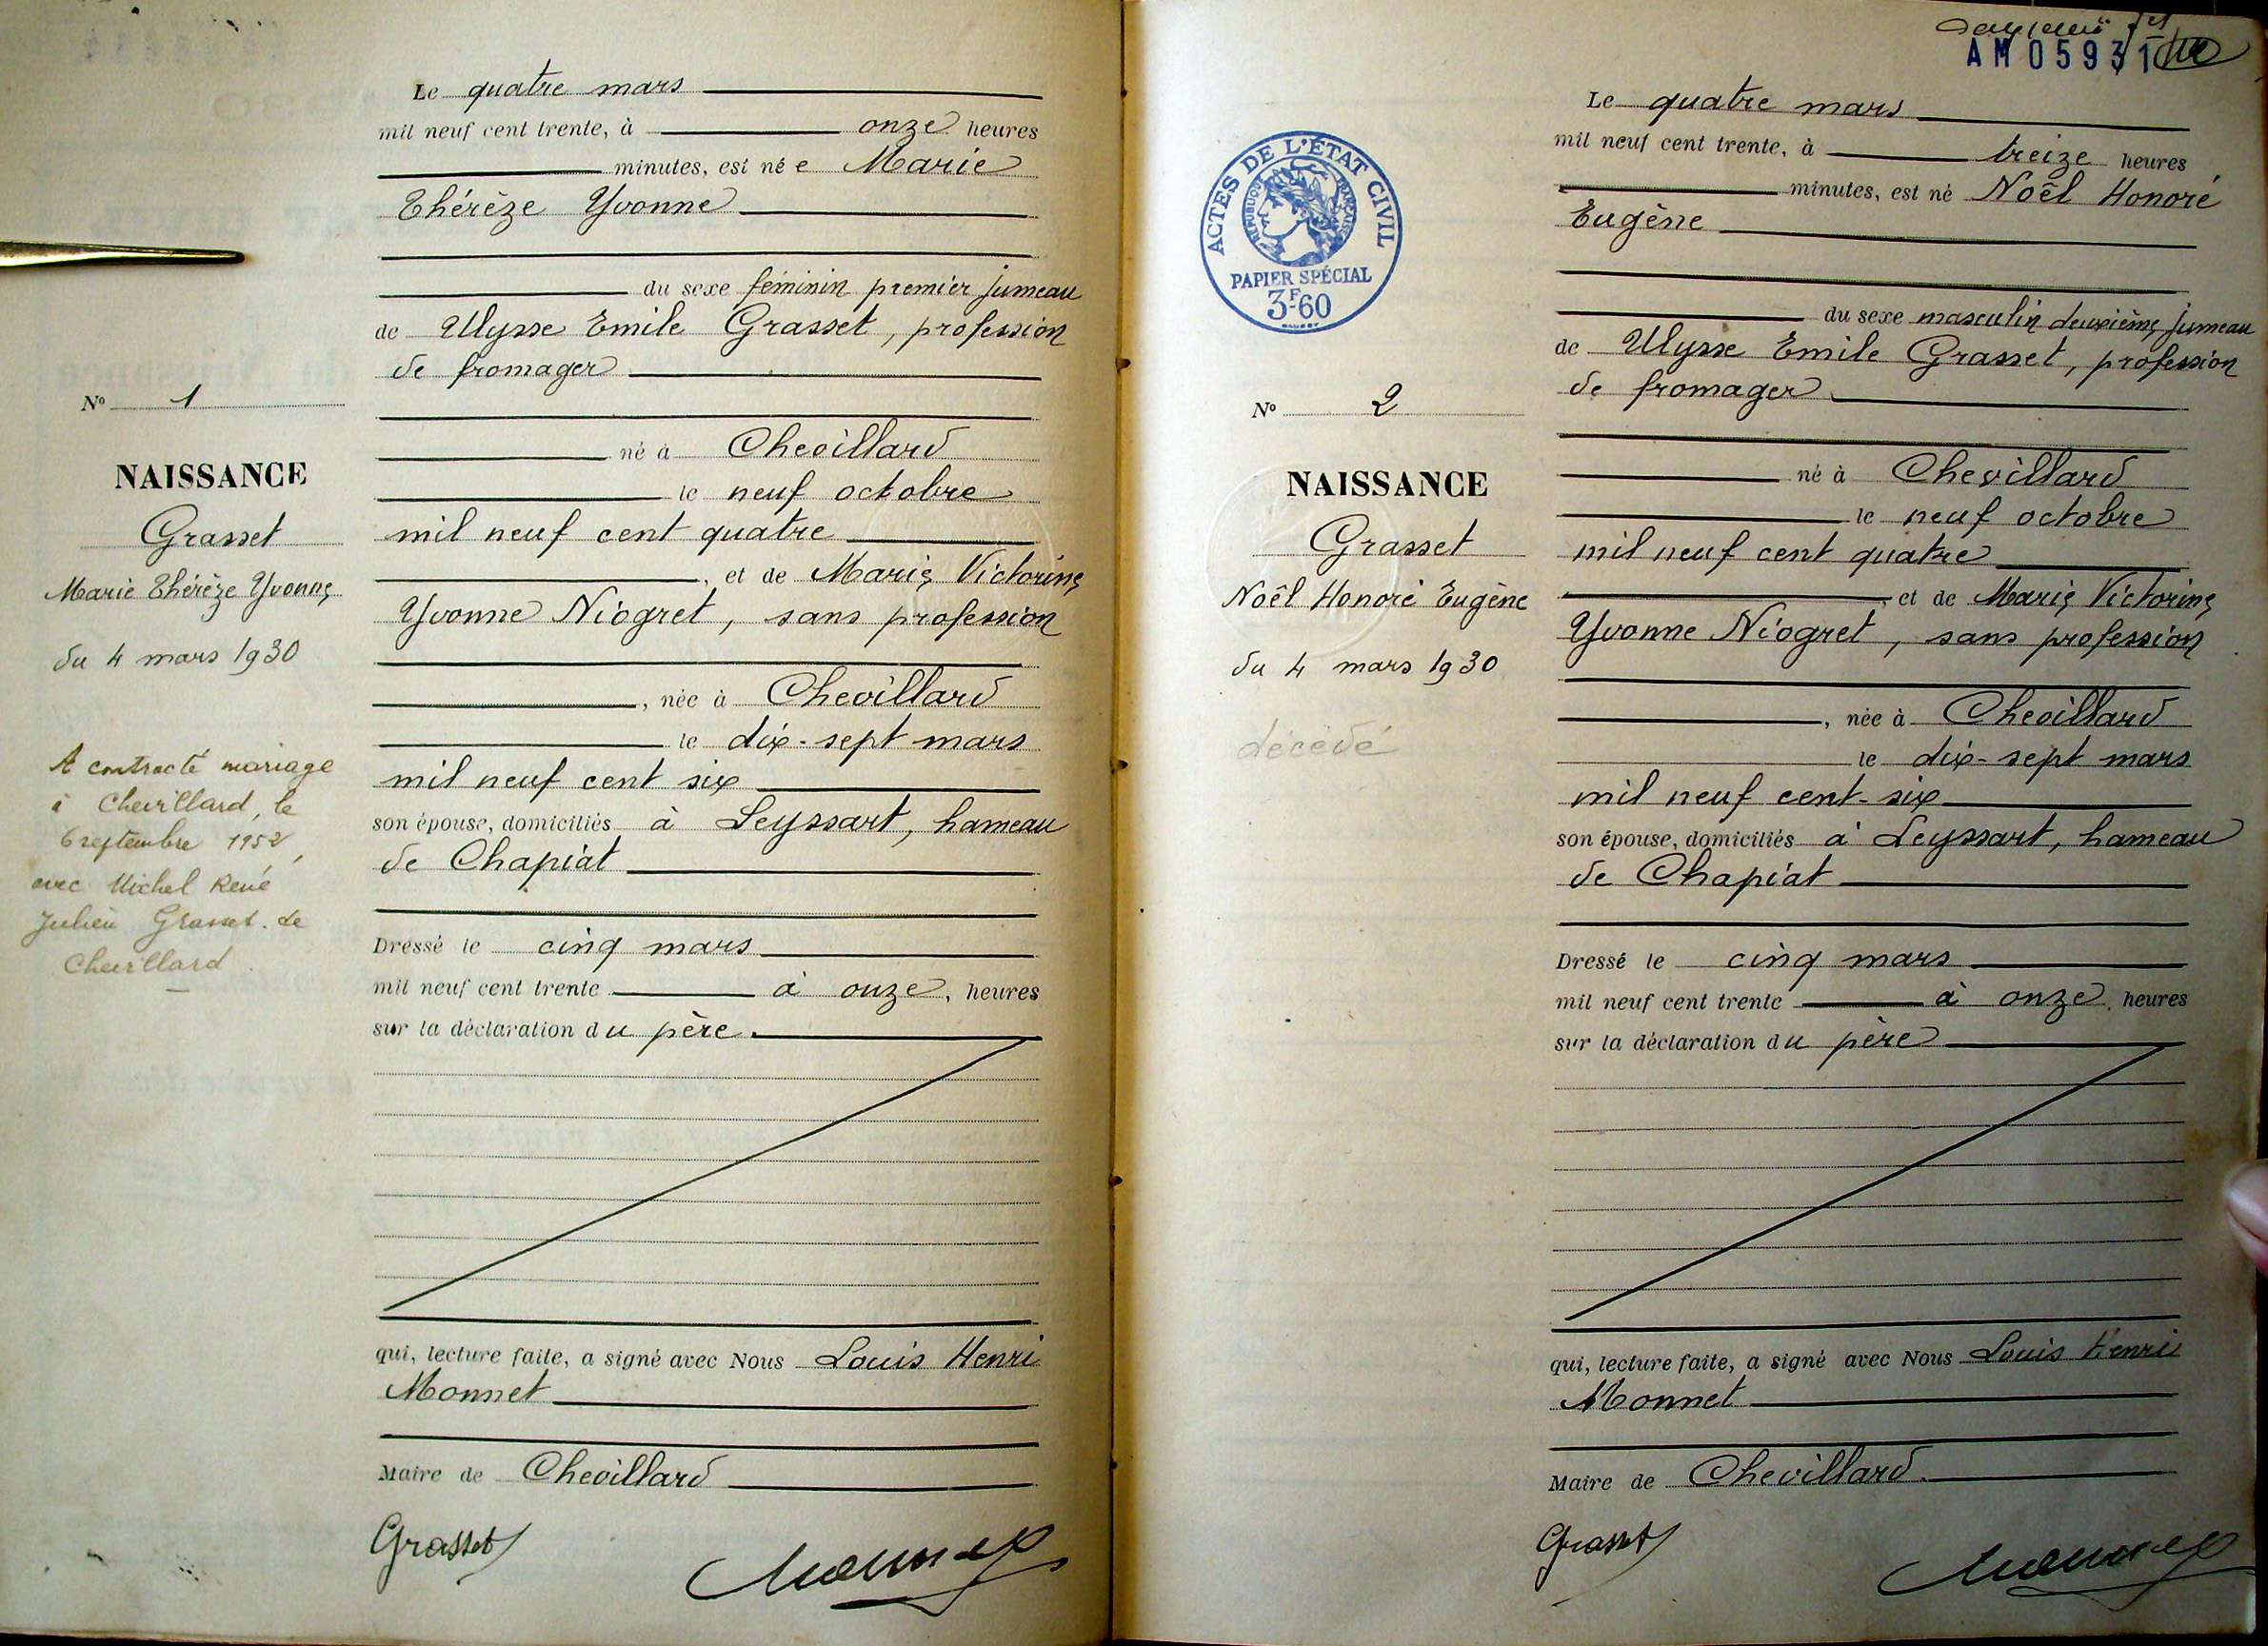 Le quatre mars
mil neuf cent trente, à onze heures
minutes, est née Marie
Thérèze Yvonne
du sexe féminin premier jumeau
de Ulysse Emile Grasset, profession
de fromager
né à Chevillard
le neuf octobre
mil neuf cent quatre
, et de Marie Victorine
Yvonne Niogret, sans profession
, née à Chevillard
le dix-sept mars
mil neuf cent six
son épouse, domiciliés à Leyssart, hameau
de Chapiat
Dressé le cinq mars
mil neuf cent trente à onze, heures
sur la déclaration du père.
qui, lecture faite, a signé avec Nous Louis Henri
Monnet
Maire de Chevillard
Grasset
Monnet
N° 1
NAISSANCE
Grasset
Marie Thérèze Yvonne
du 4 mars 1930
A contracté mariage
à Chevillard, le
6 septembre 1952,
avec Michel René
Julien Grasset de
Chevillard
AM05931
ACTES DE L'ÉTAT CIVIL
RÉPUBLIQUE FRANÇAISE
PAPIER SPÉCIAL
3F60
N° 2
NAISSANCE
Grasset
Noël Honoré Eugène
du 4 mars 1930
décédé
Le quatre mars
mil neuf cent trente, à treize heures
minutes, est né Noël Honoré
Eugène
du sexe masculin deuxième jumeau
de Ulysse Emile Grasset, profession
de fromager
né à Chevillard
le neuf octobre
mil neuf cent quatre
, et de Marie Victorine
Yvonne Niogret, sans profession
, née à Chevillard
le dix-sept mars
mil neuf cent-six
son épouse, domiciliés à Leyssart, hameau
de Chapiat
Dressé le cinq mars
mil neuf cent trente à onze heures
sur la déclaration du père
qui, lecture faite, a signé avec Nous Louis Henri
Monnet
Maire de Chevillard.
Grasset
Monnet